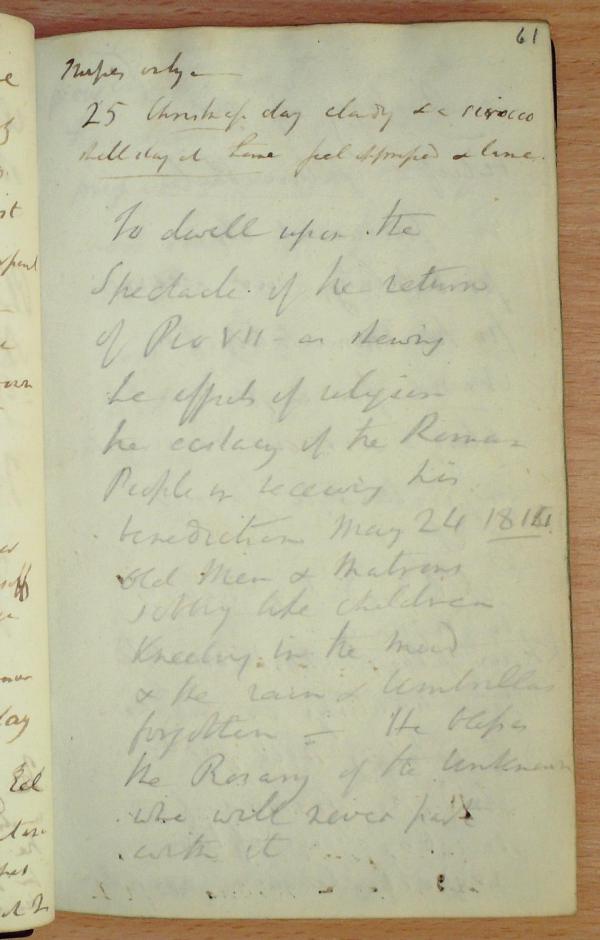 61
only
25 Christmas day cloudy & a sirocco
still day at home feel & lame.
To dwell upon the
Spectacle of the return
of Pio VII - as shewing
the effects of religion
the ecstacy of the Roman
People on receiving his
benediction May 24 1814
old Men & Matrons
sobbing like children
Kneeling in the mud
& the rain & Umbrellas
forgotten = He blesses
the Rosary of the Unknown
who will never part
with it